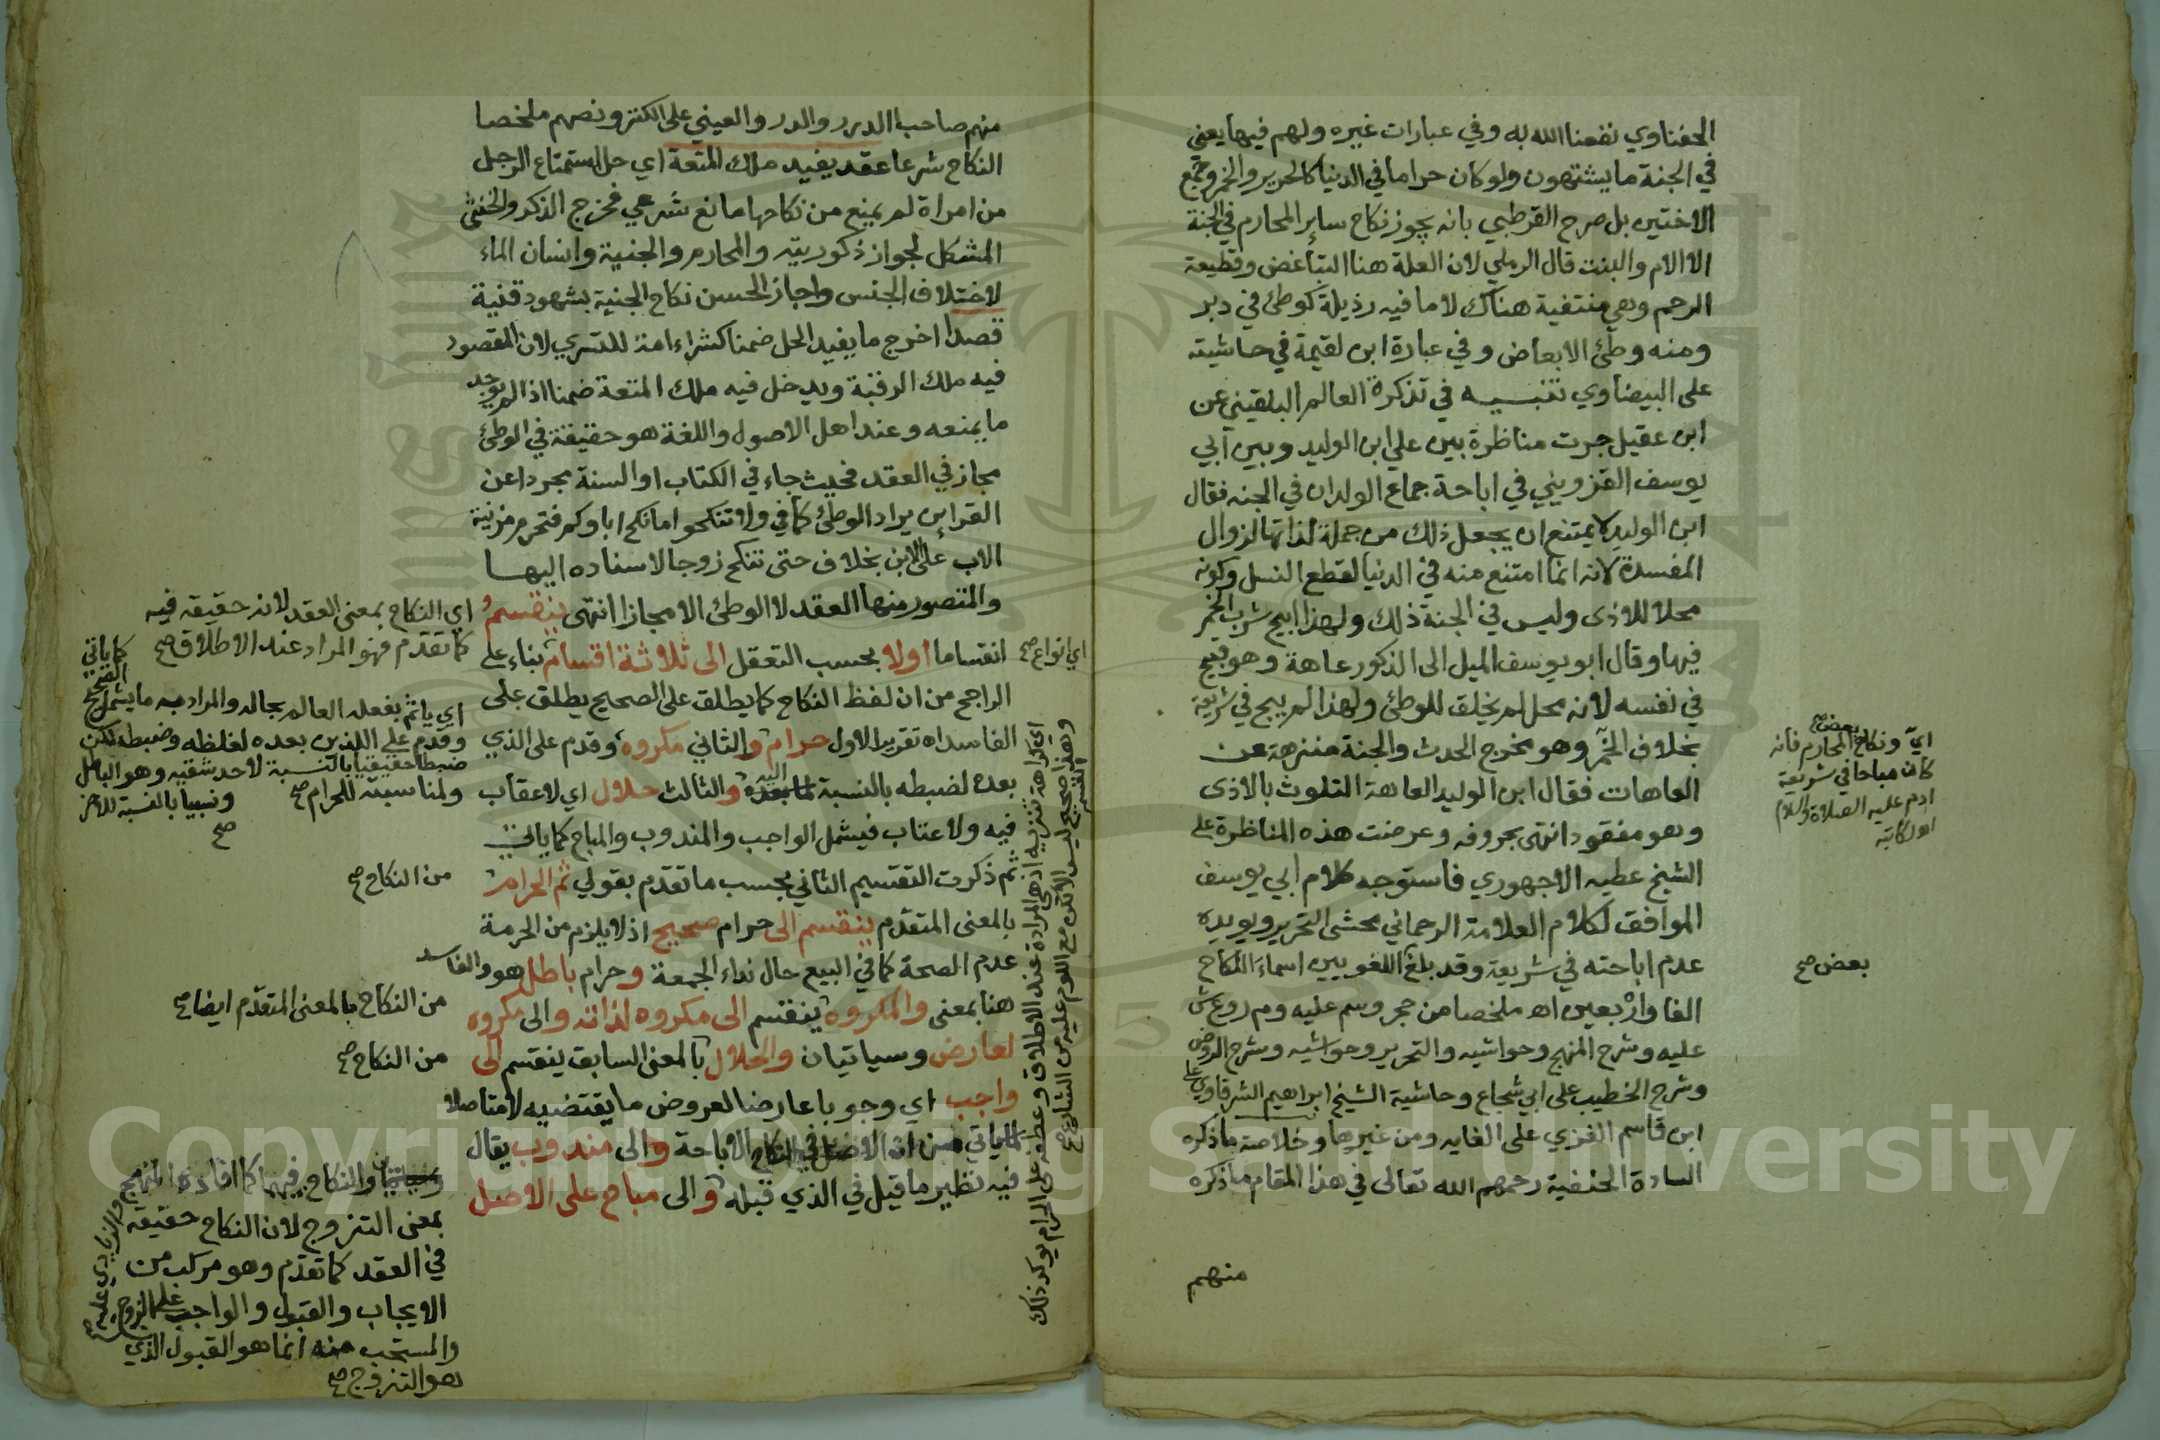 الحفناوي نفعنا الله به وفي عبارات غيره ولهم فيها يعني
في الجنة ما يشتهون ولو كان حراما في الدنيا كالحرير والخمر وجمع
الاختين بل صرح القرطبي بانه يجوز نكاح ساير المحارم في الجنة
الا الام والبنت قال الرملي لان العلة هنا التباغض وقطيعة
الرحم وهي منتفية هناك لا ما فيه رذيلة كوطئ في دبر
ومنه وطئ الابعاض وفي عبارة ابن لقيمة في حاشيته
على البيضاوي تنبيه في تذكرة العالم البلقيني عن
ابن عقيل جرت مناظرة بين علي ابن الوليد وبين ابي
يوسف القزويني في اباحة جماع الولدان في الجنه فقال
ابن الوليد لا يمتنع ان يجعل ذلك من جملة لذاتها لزوال
المفسدة لانه انما امتنع منه في الدنيا لقطع النسل وكونه
محلا للاذى وليس في الجنة ذلك ولهذا ابيح شرب الخمر
فيها وقال ابو يوسف الميل الى الذكور عاهة وهو قبيح
في نفسه لانه محل لم يخلق للوطئ ولهذا لم يبح في شريعة
بخلاف الخمر وهو مخرج الحدث والجنة منزهة عن
العاهات فقال ابن الوليد العاهة التلوث بالاذى
وهو مفقود انتهى بحروفه وعرضت هذه المناظرة على
الشيخ عطيه الاجهوري فاستوجه كلام ابي يوسف
الموافق لكلام العلامة الرحماني محشى التحرير ويويده
عدم اباحته في شريعة وقد بلغ اللغويين اسماء النكاح
الفا واربعين اه ملخصا من حجر وسم عليه وم ر وع ش
عليه وشرح المنهج وحواشيه والتحرير وحواشيه وشرح الروض
وشرح الخطيب على ابي شجاع وحاشية الشيخ ابراهيم الشرقاوي على
ابن قاسم الغزي على الغايه ومن غيرها وخلاصة ما ذكره
السادة الحنفية رحمهم الله تعالى في هذا المقام ما ذكره
منهم
بعض صح
اي ونكاح المحارم فانه
كان مباحا في شريعة
ادم عليه الصلاة والسلام
اه لكاتبه
بعض صح
منهم صاحب الدرر والدر والعيني على الكنز ونصهم ملخصا
النكاح شرعا عقد يفيد ملك المتعة اي حل استمتاع الرجل
من امراة لم يمنع من نكاحها مانع شرعي فخرج الذكر والخنثى
المشكل لجواز ذكوريته والمحارم والجنية وانسان الماء
لاختلاف الجنس واجاز الحسن نكاح الجنية بشهود قنية
قصدا اخرج ما يفيد الحل ضمنا كشراء امة للتسري لان المقصود
فيه ملك الرقبة ويدخل فيه ملك المتعة ضمنا اذا لم يوجد
ما يمنعه وعند اهل الاصول واللغة هو حقيقة في الوطئ
مجاز في العقد فحيث جاء في الكتاب او السنة مجردا عن
القراين يراد الوطئ كما في ولا تنكحوا ما نكح اباوكم فتحرم مزنية
الاب على الابن بخلاف حتى تنكح زوجا لاسناده اليها
والمتصور منها العقد لا الوطئ الا مجازا انتهى وينقسم
انقساما اولا بحسب التعقل الى ثلاثة اقسام بناء على
الراجح من ان لفظ النكاح كما يطلق على الصحيح يطلق على
الفاسد اه تقرير الاول حرام والثاني مكروه وقدم على الذي
بعده لضبطه بالنسبة اليه والثالث حلال اي لا عقاب
فيه ولا عتاب فيشمل الواجب والمندوب والمباح كما ياتي
ثم ذكرت التقسيم الثاني بحسب ما تقدم بقولي ثم الحرام
بالمعنى المتقدم ينقسم الى حرام صحيح اذ لا يلزم من الحرمة
عدم الصحة كما في البيع حال نداء الجمعة وحرام باطل هو والفاسد
هنا بمعنى والمكروه ينقسم الى مكروه لذاته والى مكروه
لعارض وسياتيان والحلال بالمعنى السابق ينقسم الى
واجب اي وجوبا عارضا لعروض ما يقتضيه لا متاصلا
لما ياتي من ان الاصل في النكاح الاباحة والى مندوب يقال
فيه نظير ما قيل في الذي قبله والى مباح على الاصل
اي انواع صح
اي النكاح بمعنى العقد لانه حقيقة فيه
كما تقدم فهو المراد عند الاطلاق صح
كما ياتي
اي ياثم بفعله العالم بحاله والمراد به ما يشمل القبيح
وقدم على اللذين بعده لغلظه وضبطه لكن
ضبطا حقيقيا بالنسبة لاحد شقيه وهو الباطل
ونسبيا بالنسبة للاخر
ولمناسبته للحرام صح
صح
من النكاح صح
من النكاح بالمعنى المتقدم ايضا صح
من النكاح صح
والنكاح فيهما كما افاده المنهج
بمعنى التزوج لان النكاح حقيقة
في العقد كما تقدم وهو مركب من
الايجاب والقبول والواجب على الزوج
والمستحب منه انما هو القبول الذي
هو التزوج صح
اي كراهة تنزيه اذ هي المرادة عند الاطلاق وعطفه على الحرام يوكد ذلك